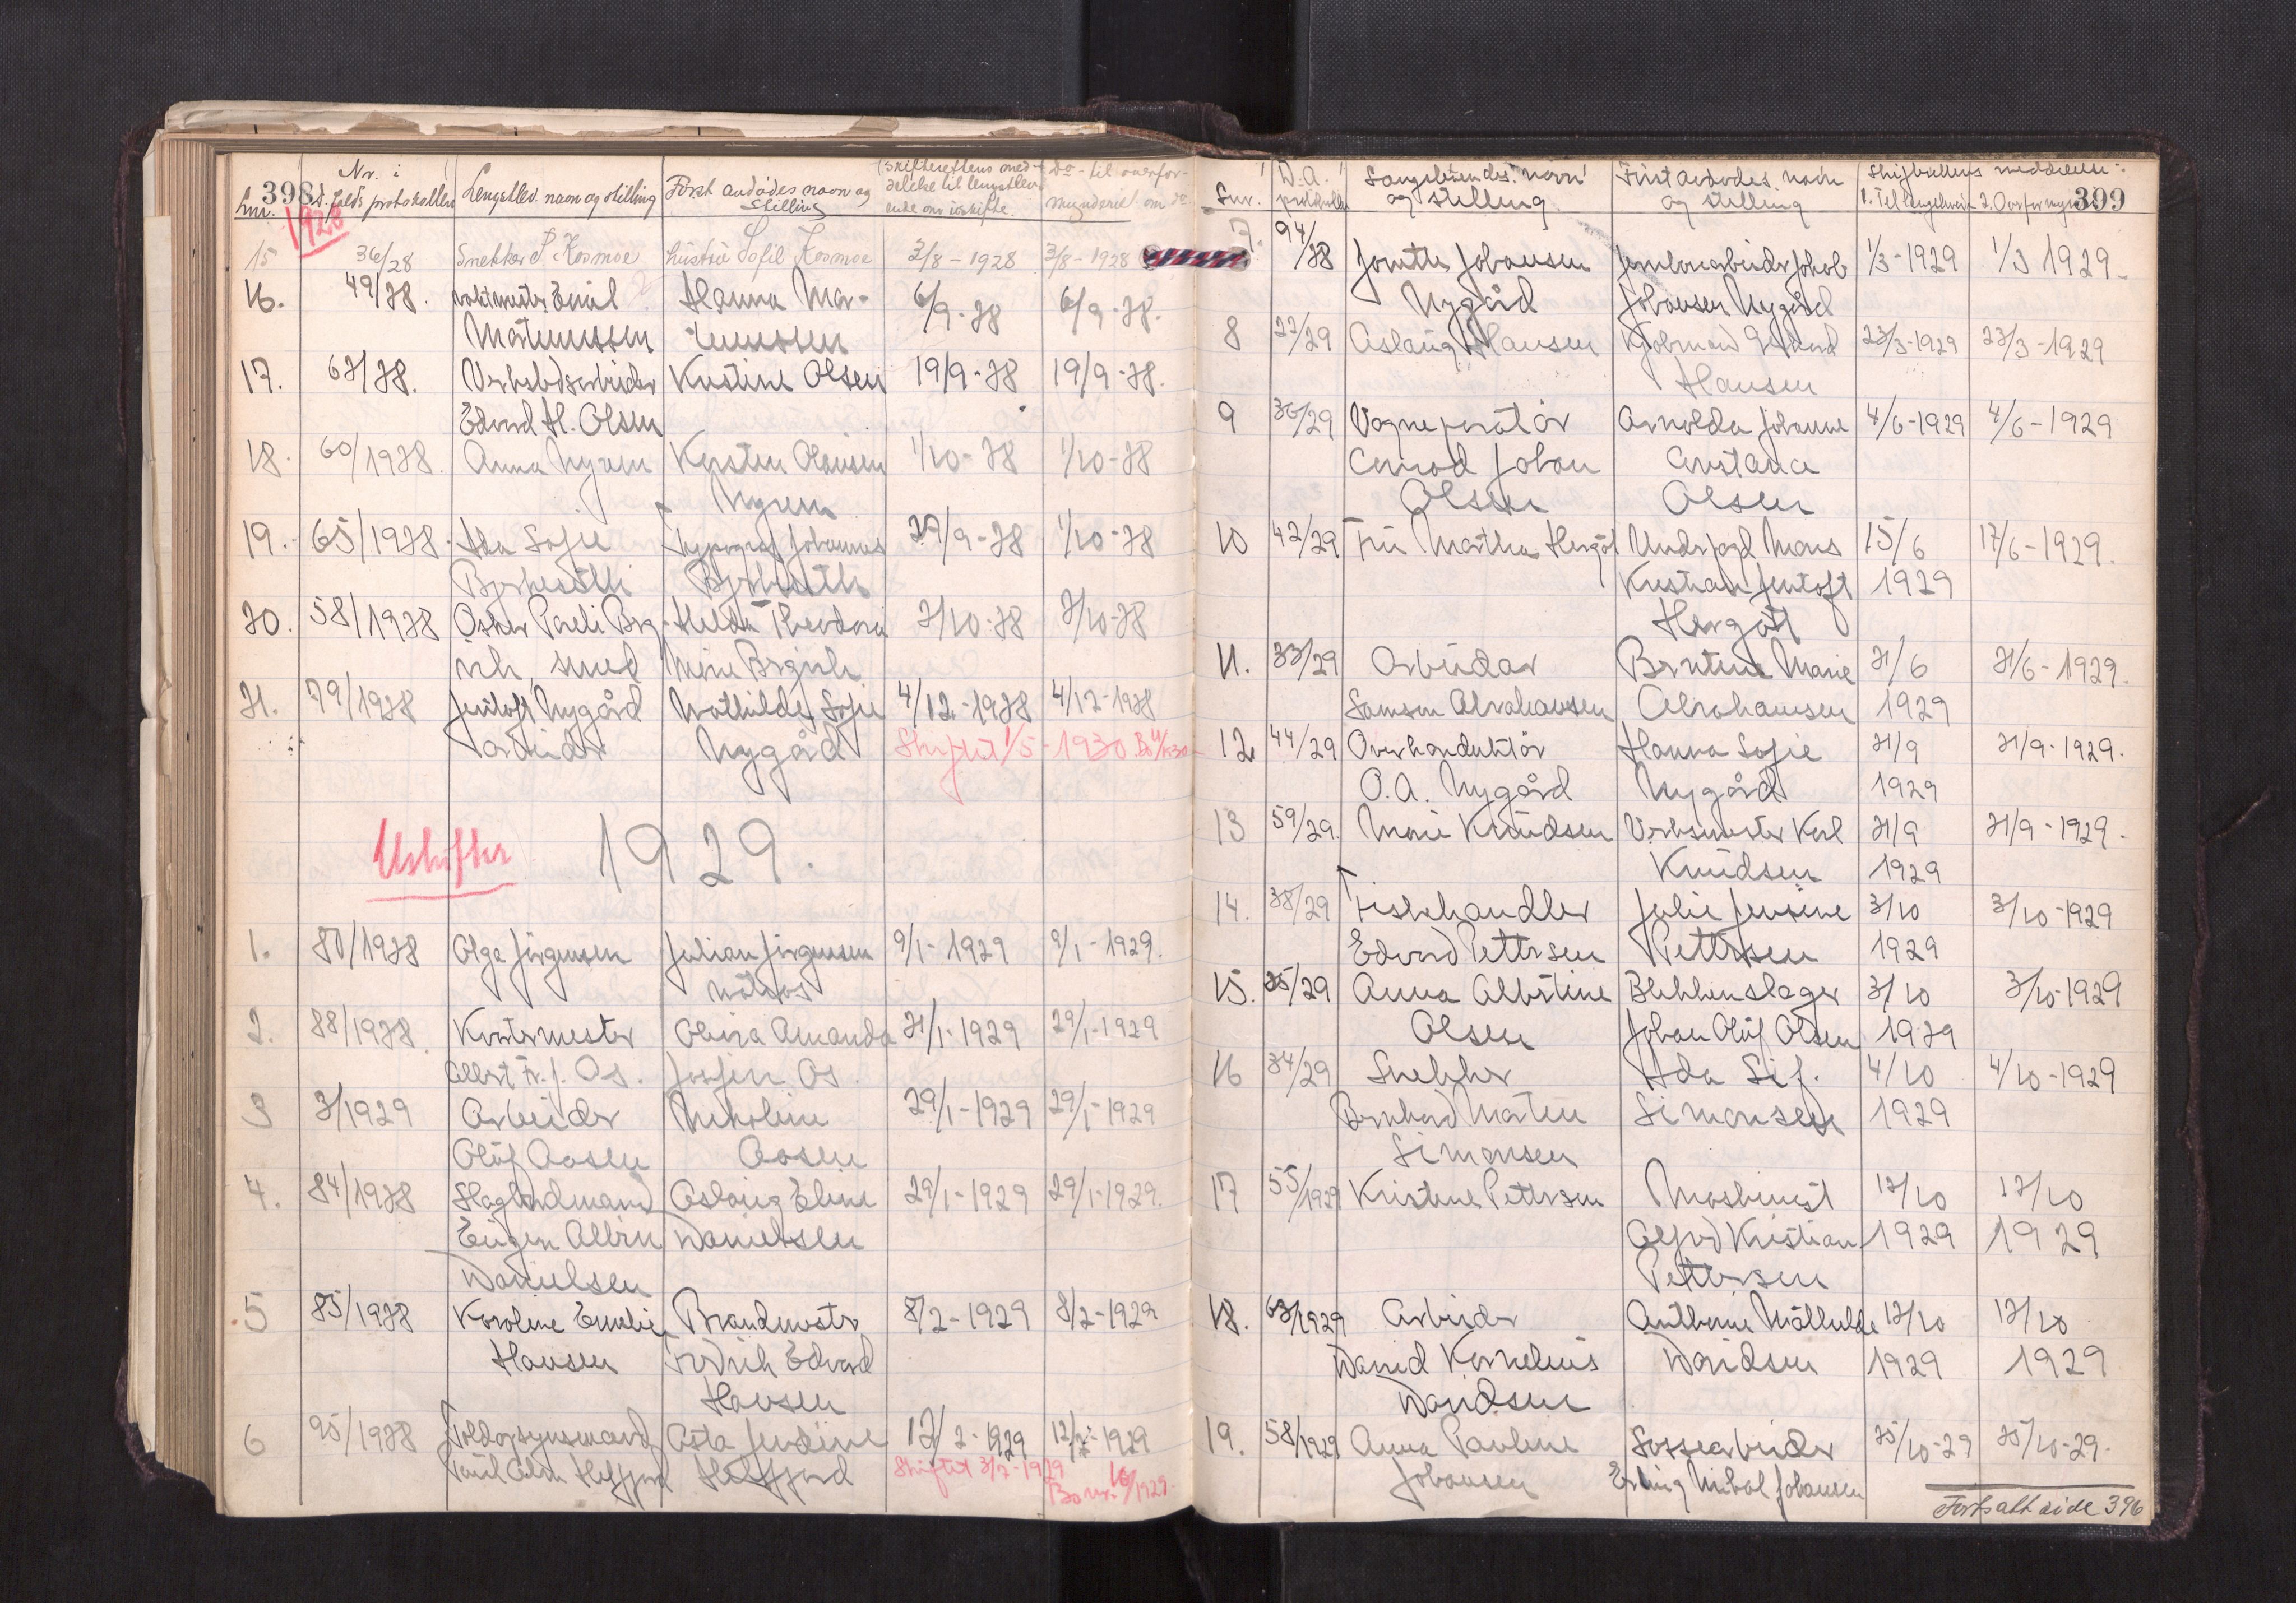 398
Lnr.
Nr. i
d. felds protokollen
Lengstlev. navn og stilling
Först avdödes navn og
stilling
Skifterettens med-
delelse til lengstlev-
ende om uskifte.
Do - til overfor-
mynderiet om do
1928
15 36/28 Snekker P. Kosmoe Hustru Sofie Kosmoe 3/8 - 1928 3/8 - 1928
16. 49/28. Emil Hanna Mar- 6/9 - 28 6/9 - 28.
Martinussen tinussen
17. 62/28. Verkstedsarbeider Kristine Olsen 19/9 - 28 19/9 - 28.
Edvard H. Olsen
18. 60/1928. Anna Nyrem Kirsten Olausen 1/10 - 28 1/10 - 28
Nyrem
19. 65/1928. Ida Sofie Typograf Johannes 29/9 - 28 1/10 - 28
20. 58/1928 Oskar Hilda Theodora 2/10 - 28 2/10 - 28
smed
21. 79/1928 Jentoft Nygård Mathilde Sofie 4/12 - 1928 4/12 - 1928
arbeider Nygård Skiftet 1/5 - 1930
Uskifter 1929.
1. 80/1928 Olga Jörgensen Julian Jörgensen 9/1 - 1929 9/1 - 1929.
matros
2. 88/1928. Olivia Amanda 21/1 - 1929 29/1 - 1929
Albert Fr. J. Os. Os.
3 2/1929 Arbeider Nikoline 29/1 - 1929 29/1 - 1929
Olaf Aasen Aasen
4. 84/1928 Aslaug Eline 29/1 - 1929 29/1 - 1929.
Eugen Albin Danielsen
Danielsen
5 85/1928 Karoline Emelie Brandmester 8/2 - 1929 8/2 - 1929
Hansen Fredrik Edvard
Hansen
6 95/1928 Toldopsynsmand Asta Jendine 12/2 - 1929 12/2 - 1929
Skiftet 3/7 - 1929
Bo nr. 10/1929
399
Lnr.
D.A.
protokoll
Lengstlevendes navn
og stilling
Först avdödes navn
og stilling
Skifterettens meddelelse:
1. Til lengstlev. 2. Overformynd.
7. 94/28 Johansen Jernbanearbeider Jakob 1/3 - 1929 1/3 1929
Nygård Johansen Nygård
8 22/29 Aslaug Hansen 23/3 - 1929 23/3 - 1929
Hansen
9 36/29 Arnolda Johanne 4/6 - 1929 4/6 - 1929
Conrad Johan Constance
Olsen Olsen
10 42/29. Fru Martha Hergot Underfogd Mons 15/6 17/6 - 1929.
Kristian Jentoft 1929
Hergot
11. 33/29 Arbeider Berntine Marie 21/6 21/6 - 1929.
Samson Abrahamsen Abrahamsen 1929
12. 44/29 Overkonduktör Hanna Sofie 21/9 21/9 - 1929.
O. A. Nygård Nygård 1929
13 59/29. Marie Knudsen Verksmester Karl 21/9 21/9 - 1929.
Knudsen 1929
14. 38/29 Fiskehandler Julie Jensine 3/10 3/10 - 1929
Edvard Pettersen Pettersen 1929
15. 25/29 Anna Albertine Blikkenslager 3/10 3/10 - 1929
Olsen Johan Oluf Olsen 1929
16 34/29 Snekker Ida Sif. 4/10 4/10 - 1929
Bernhard Martin Simonsen 1929
Simonsen
17 55/1929 Kristine Pettersen Maskinist 12/10 12/10
Alfred Kristian 1929 1929
Pettersen
18. 63/1929 Arbeider Anthonie Mathilde 12/10 12/10
David Kornelius Davidsen 1929 1929
Davidsen
19. 58/1929 Anna Pauline Losse arbeider 25/10 - 29 25/10 - 29.
Johansen Erling Mikal Johansen
Fortsatt side 396